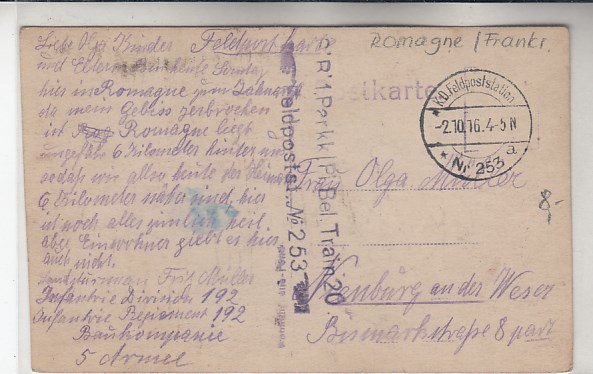 Romagne / Frankr.
Feldpostkarte
Liebe Olga Kinder
und Eltern bin heute Sonntag
hier in Romagne zum Zahnarzt
da mein Gebiss zerbrochen
ist Romagne liegt
ungefähr 6 Kilometer hinter
sodass wir alles heute der Heimat
6 Kilometer näher sind. hier
ist noch alles ziemlich heil
aber Einwohner giebt es hier
auch nicht.
Landsturmann Fritz Müller
Infantrie Division 192
Infantrie Regiment 192
Baukompanie
5 Armee
Postkarte
K.D. Feldpoststation
-2.10.16. 4-5 N
a
* Nr 253 *
Feldpostst. No 253
Bel. Train 20
Frau Olga Müller
Nienburg an der Weser
Bismarkstraße 8 part
8-